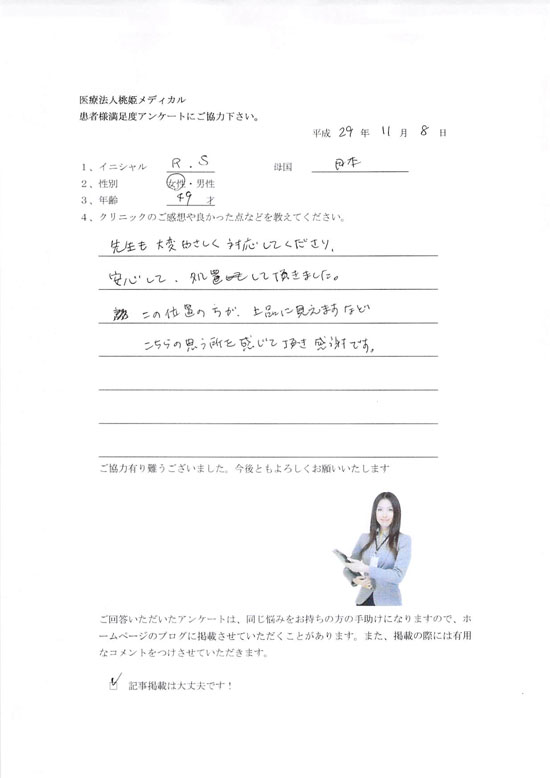 医療法人桃姫メディカル
患者様満足度アンケートにご協力下さい。
平成 29 年 11 月 8 日
1、イニシャル R.S 母国 日本
2、性別 女性・男性
3、年齢 49 才
4、クリニックのご感想や良かった点などを教えてください。
先生も大変やさしく対応してくださり、
安心して、処置して頂きました。
この位置のうが、上品に見えますなど
こちらの思う所を感じて頂き感謝です。
ご協力有り難うございました。今後ともよろしくお願いいたします
ご回答いただいたアンケートは、同じ悩みをお持ちの方の手助けになりますので、ホ
ームページのブログに掲載させていただくことがあります。また、掲載の際には有用
なコメントをつけさせていただきます。
記事掲載は大丈夫です！